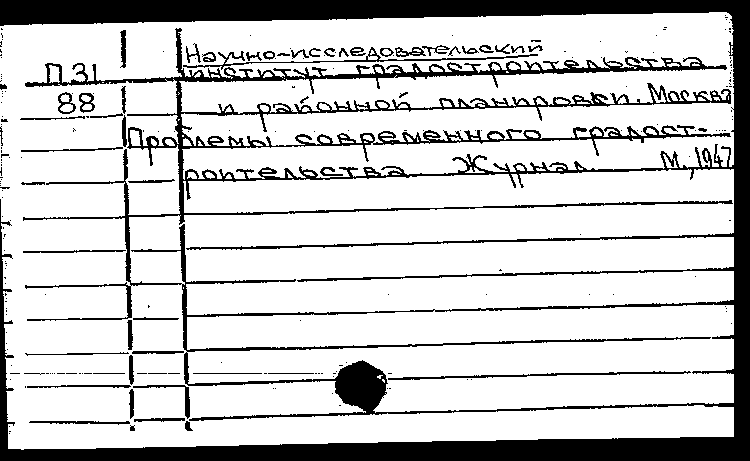 Научно-исследовательский
П.31 институт градостроительства
88 и районной планировки. Москва
Проблемы современного градост-
роительства Журнал. М., 1947